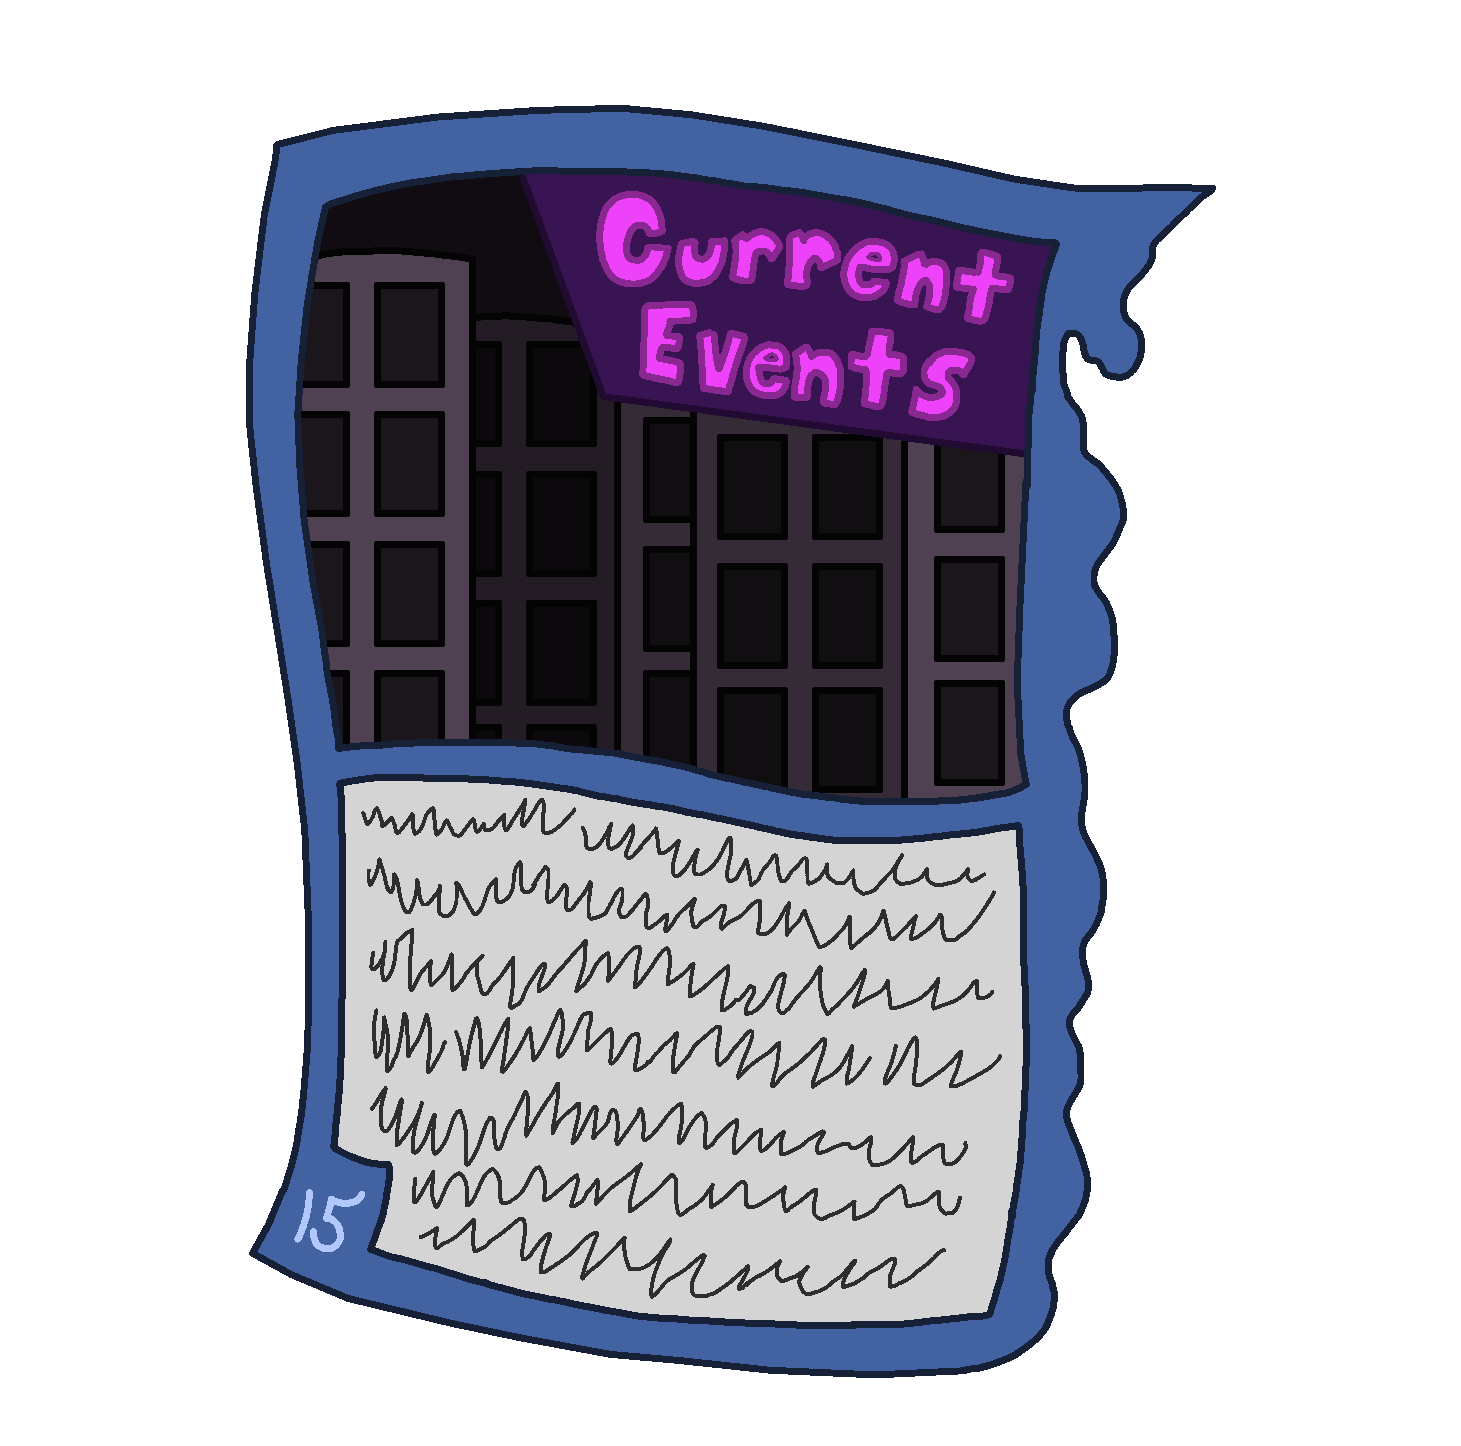 Current
Events
15